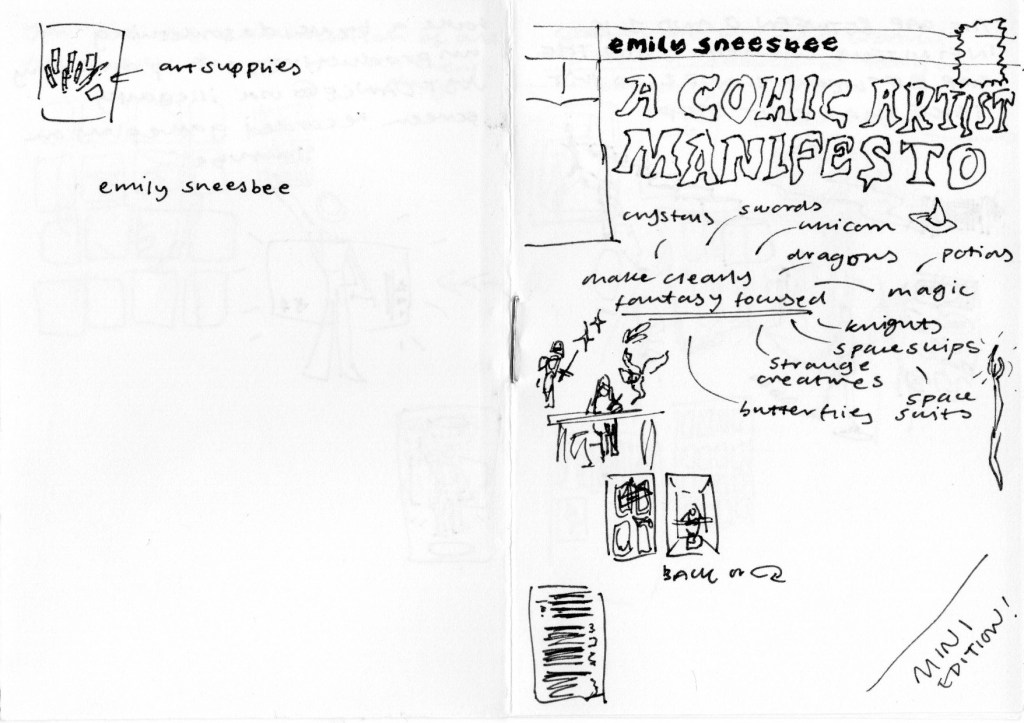 art supplies
emily sneesbee
emily sneesbee
A COMIC ARTIST
MANIFESTO
crystals
swords
unicorn
dragons
potions
make clearly
fantasy focused
magic
knights
spaceships
strange
creatures
space
suits
butterflies
BACK OF
MINI
EDITION!